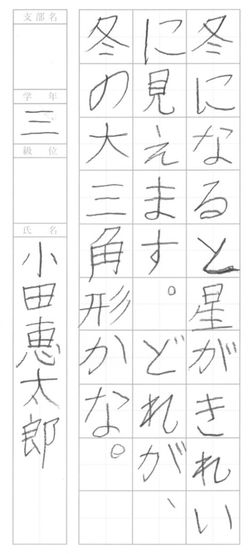 冬になると星がきれい
に見えます。どれが、
冬の大三角形かな。
支部名
学年
三
級位
氏名
小田恵太郎